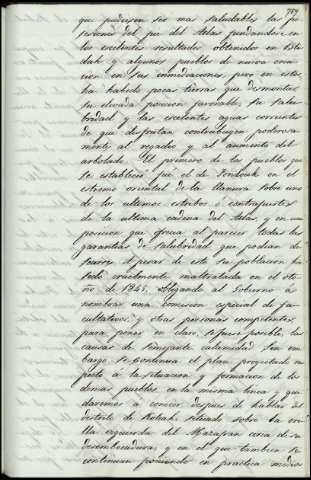 759
que pudiesen ser mas saludables las po-
sesiones del pie del Atlas fundandose en
los escelentes resultados obtenidos en Bli-
dah y algunos pueblos de nueva crea-
cion en sus inmediaciones, pero en estos
ha habido pocas tierras que desmontar,
su elevada posicion favorable, su salu-
bridad y las escelentes aguas corrientes
de que disfrutan contribuyen poderosa-
mente al regadio y al aumento del
arbolado. El primero de los pueblos que
se establecio fue el de Fondouk en el
estremo oriental de la llanura sobre uno
de los ultimos estribos ó contrafuertes
de la ultima cadena del Atlas, y en una
posicion que ofrecia al parecer todas las
garantias de salubridad que podian de-
searse. A pesar de esto su poblacion ha
sido cruelmente maltratada en el oto-
ño de 1845, obligando al Gobierno á
nombrar una comision especial de fa-
cultativos y otras personas competentes
para poner en claro, si fuese posible, las
causas de semejante calamidad. Sin em-
bargo, se continua el plan proyectado res-
pecto á la situacion y formacion de los
demas pueblos en la misma linea y que
daremos á conocer despues de hablar del
distrito de Koleah, situado sobre la ori-
lla izquierda del Mazafran cerca de su
desembocadura, y en el que tambien se
continuan poniendo en practica medios